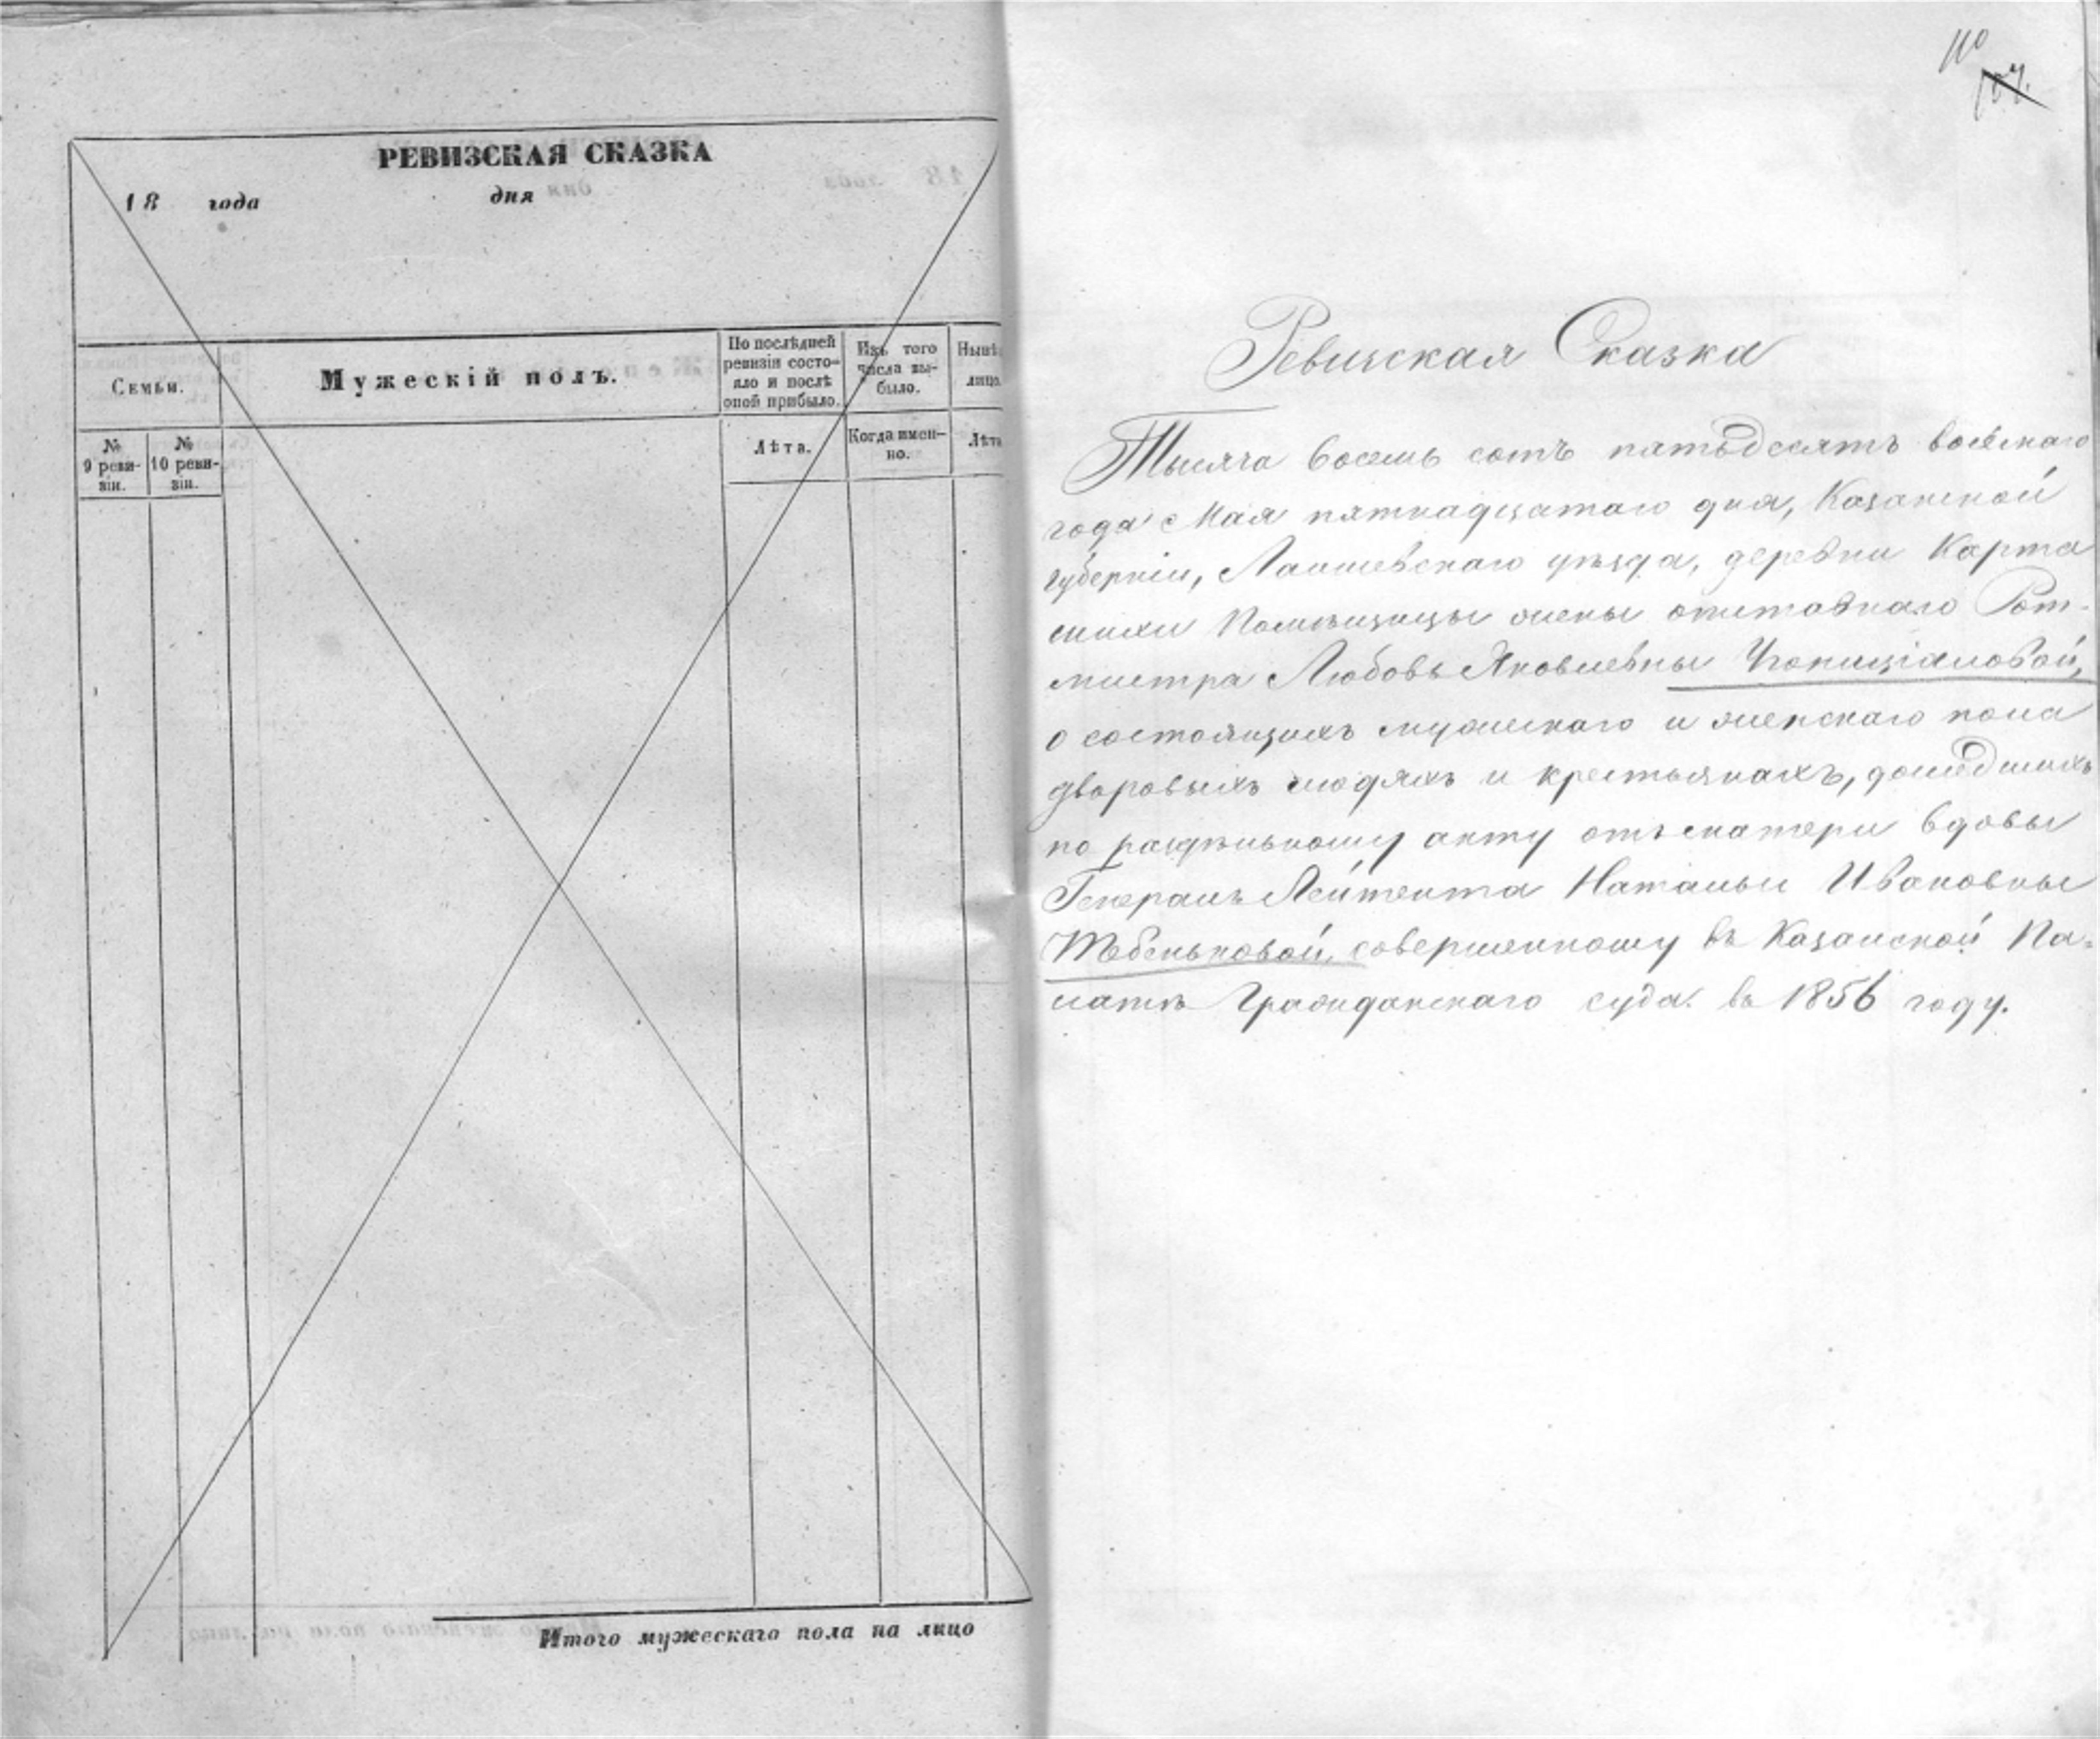 РЕВИЗСКАЯ СКАЗКА
18 года дня
Семьи.
Мужескій полъ.
По послѣдней
ревизіи состо-
яло и послѣ
оной прибыло.
Изъ того
числа вы-
было.
Нынѣ
лицо.
№
9 реви-
зіи.
№
10 реви-
зіи.
Лѣта.
Когда имен-
но.
Лѣта
Итого мужескаго пола на лицо
110
107.
Ревизская Сказка
Тысяча восемь сотъ пятьдесятъ восьмаго
года Мая пятнадцатаго дня, Казанской
губерніи, Лаишевскаго уѣзда, деревни Карта
шихи Помѣщицы жены отставнаго Рот-
мистра Любовь Яковлевны
о состоящихъ мужескаго и женскаго пола
дворовыхъ людяхъ и крестьянахъ, дошедшихъ
по раздѣльному акту отъ матери вдовы
Генералъ Лейтента Натальи Ивановны
Тебеньковой, совершенному въ Казанской Па-
латѣ Гражданскаго суда. въ 1856 году.